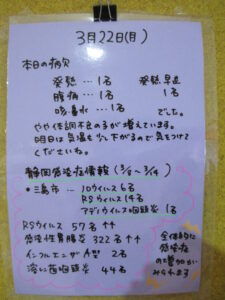 3月22日(月)
本日の病欠
発熱…1名 発熱早退
腹痛…1名 1名
咳・鼻水…1名 でした。
やや体調不良の子が増えています。
明日は気温も少し下がるので気をつけて
くださいね。
静岡感染症情報(3/8~3/14)
・三島市…ノロウイルス6名
RSウイルス14名
アデノウイルス咽頭炎1名
RSウイルス 57名↑↑
感染性胃腸炎 322名↑↑
インフルエンザ 2名
溶レン菌咽頭炎 44名
全体的に
感染症
の増加が
みられます